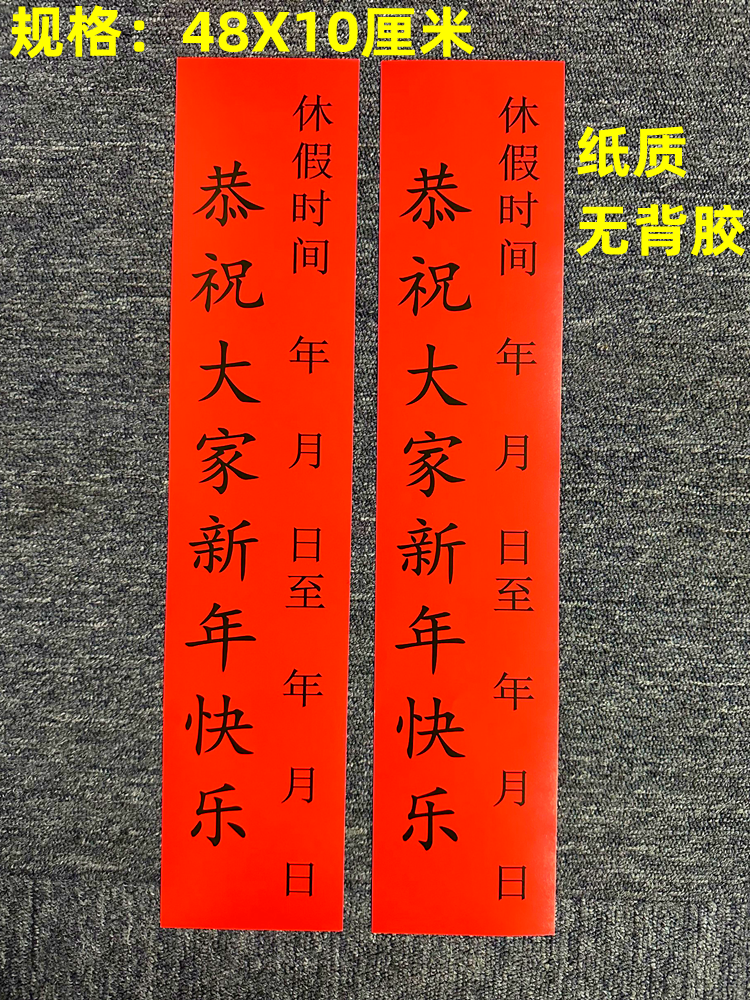 规格：48X10厘米
纸质
无背胶
休假时间 年 月 日至 年 月 日
恭祝大家新年快乐
休假时间 年 月 日至 年 月 日
恭祝大家新年快乐